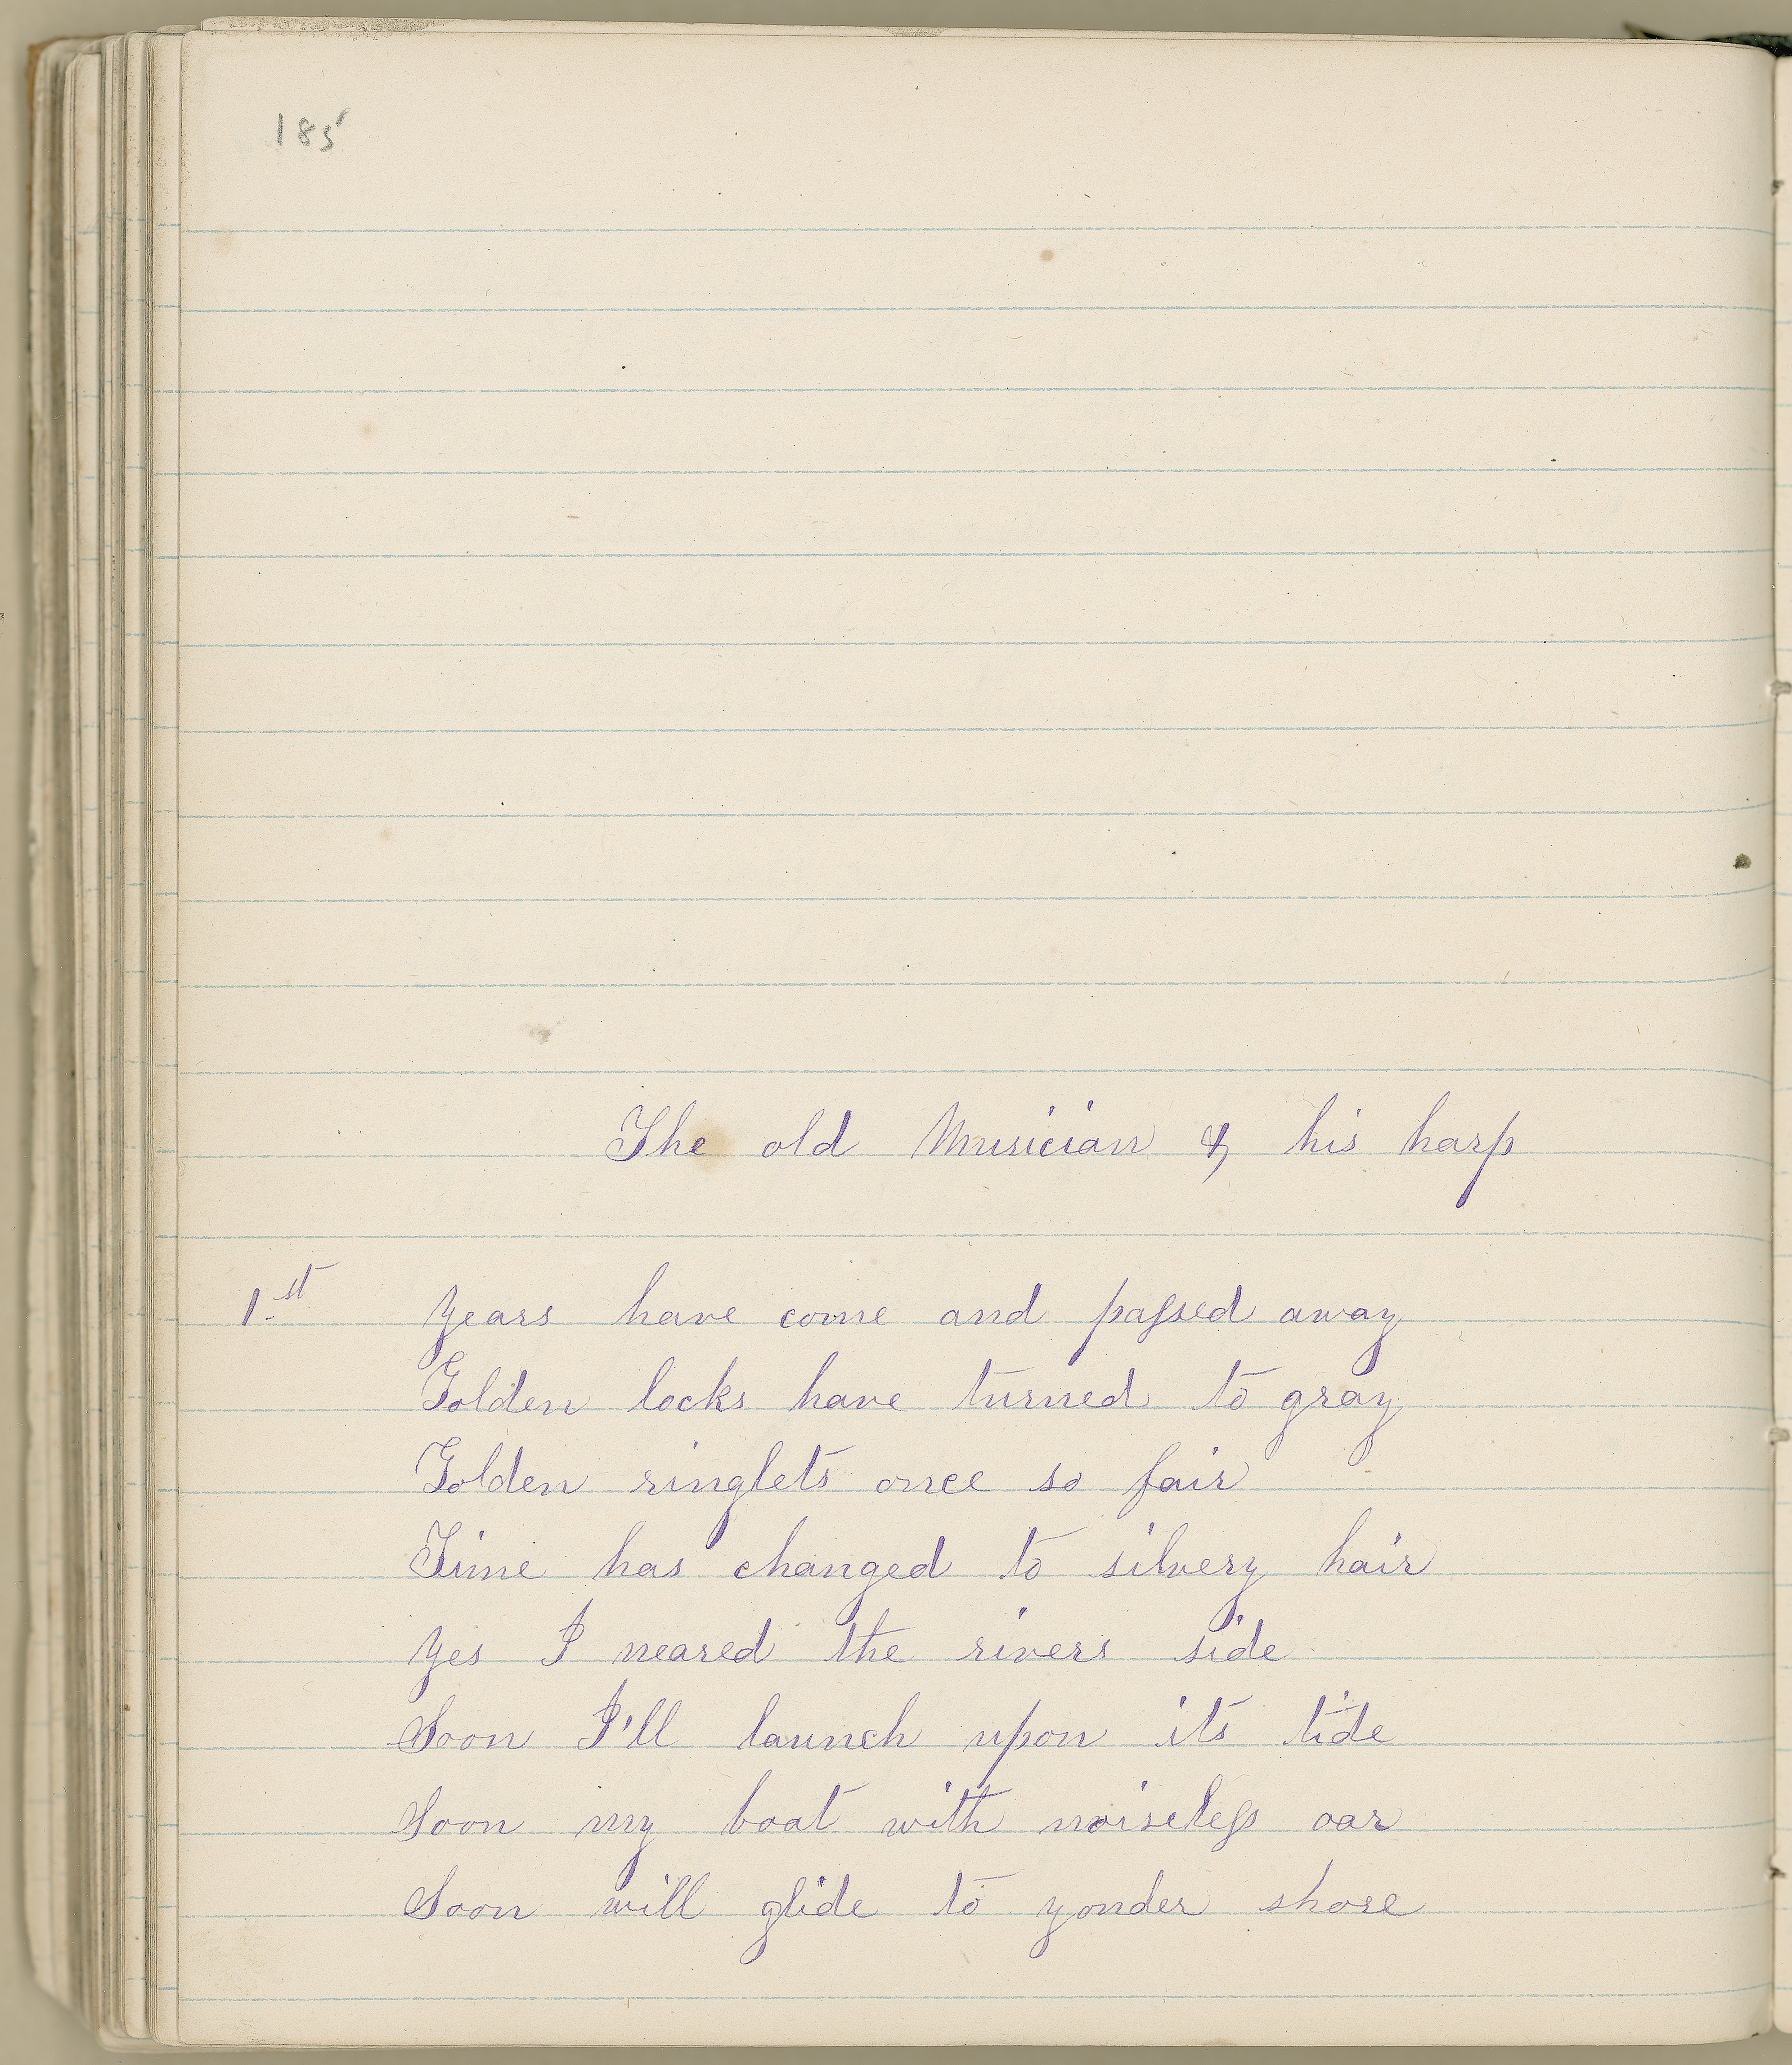 185
The old Musician & his harp
1st Years have come and passed away
Golden locks have turned to gray
Golden ringlets once so fair
Time has changed to silvery hair
Yes I neared the rivers side
Soon I'll launch upon its tide
Soon my boat with noiseless oar
Soon will glide to yonder shore